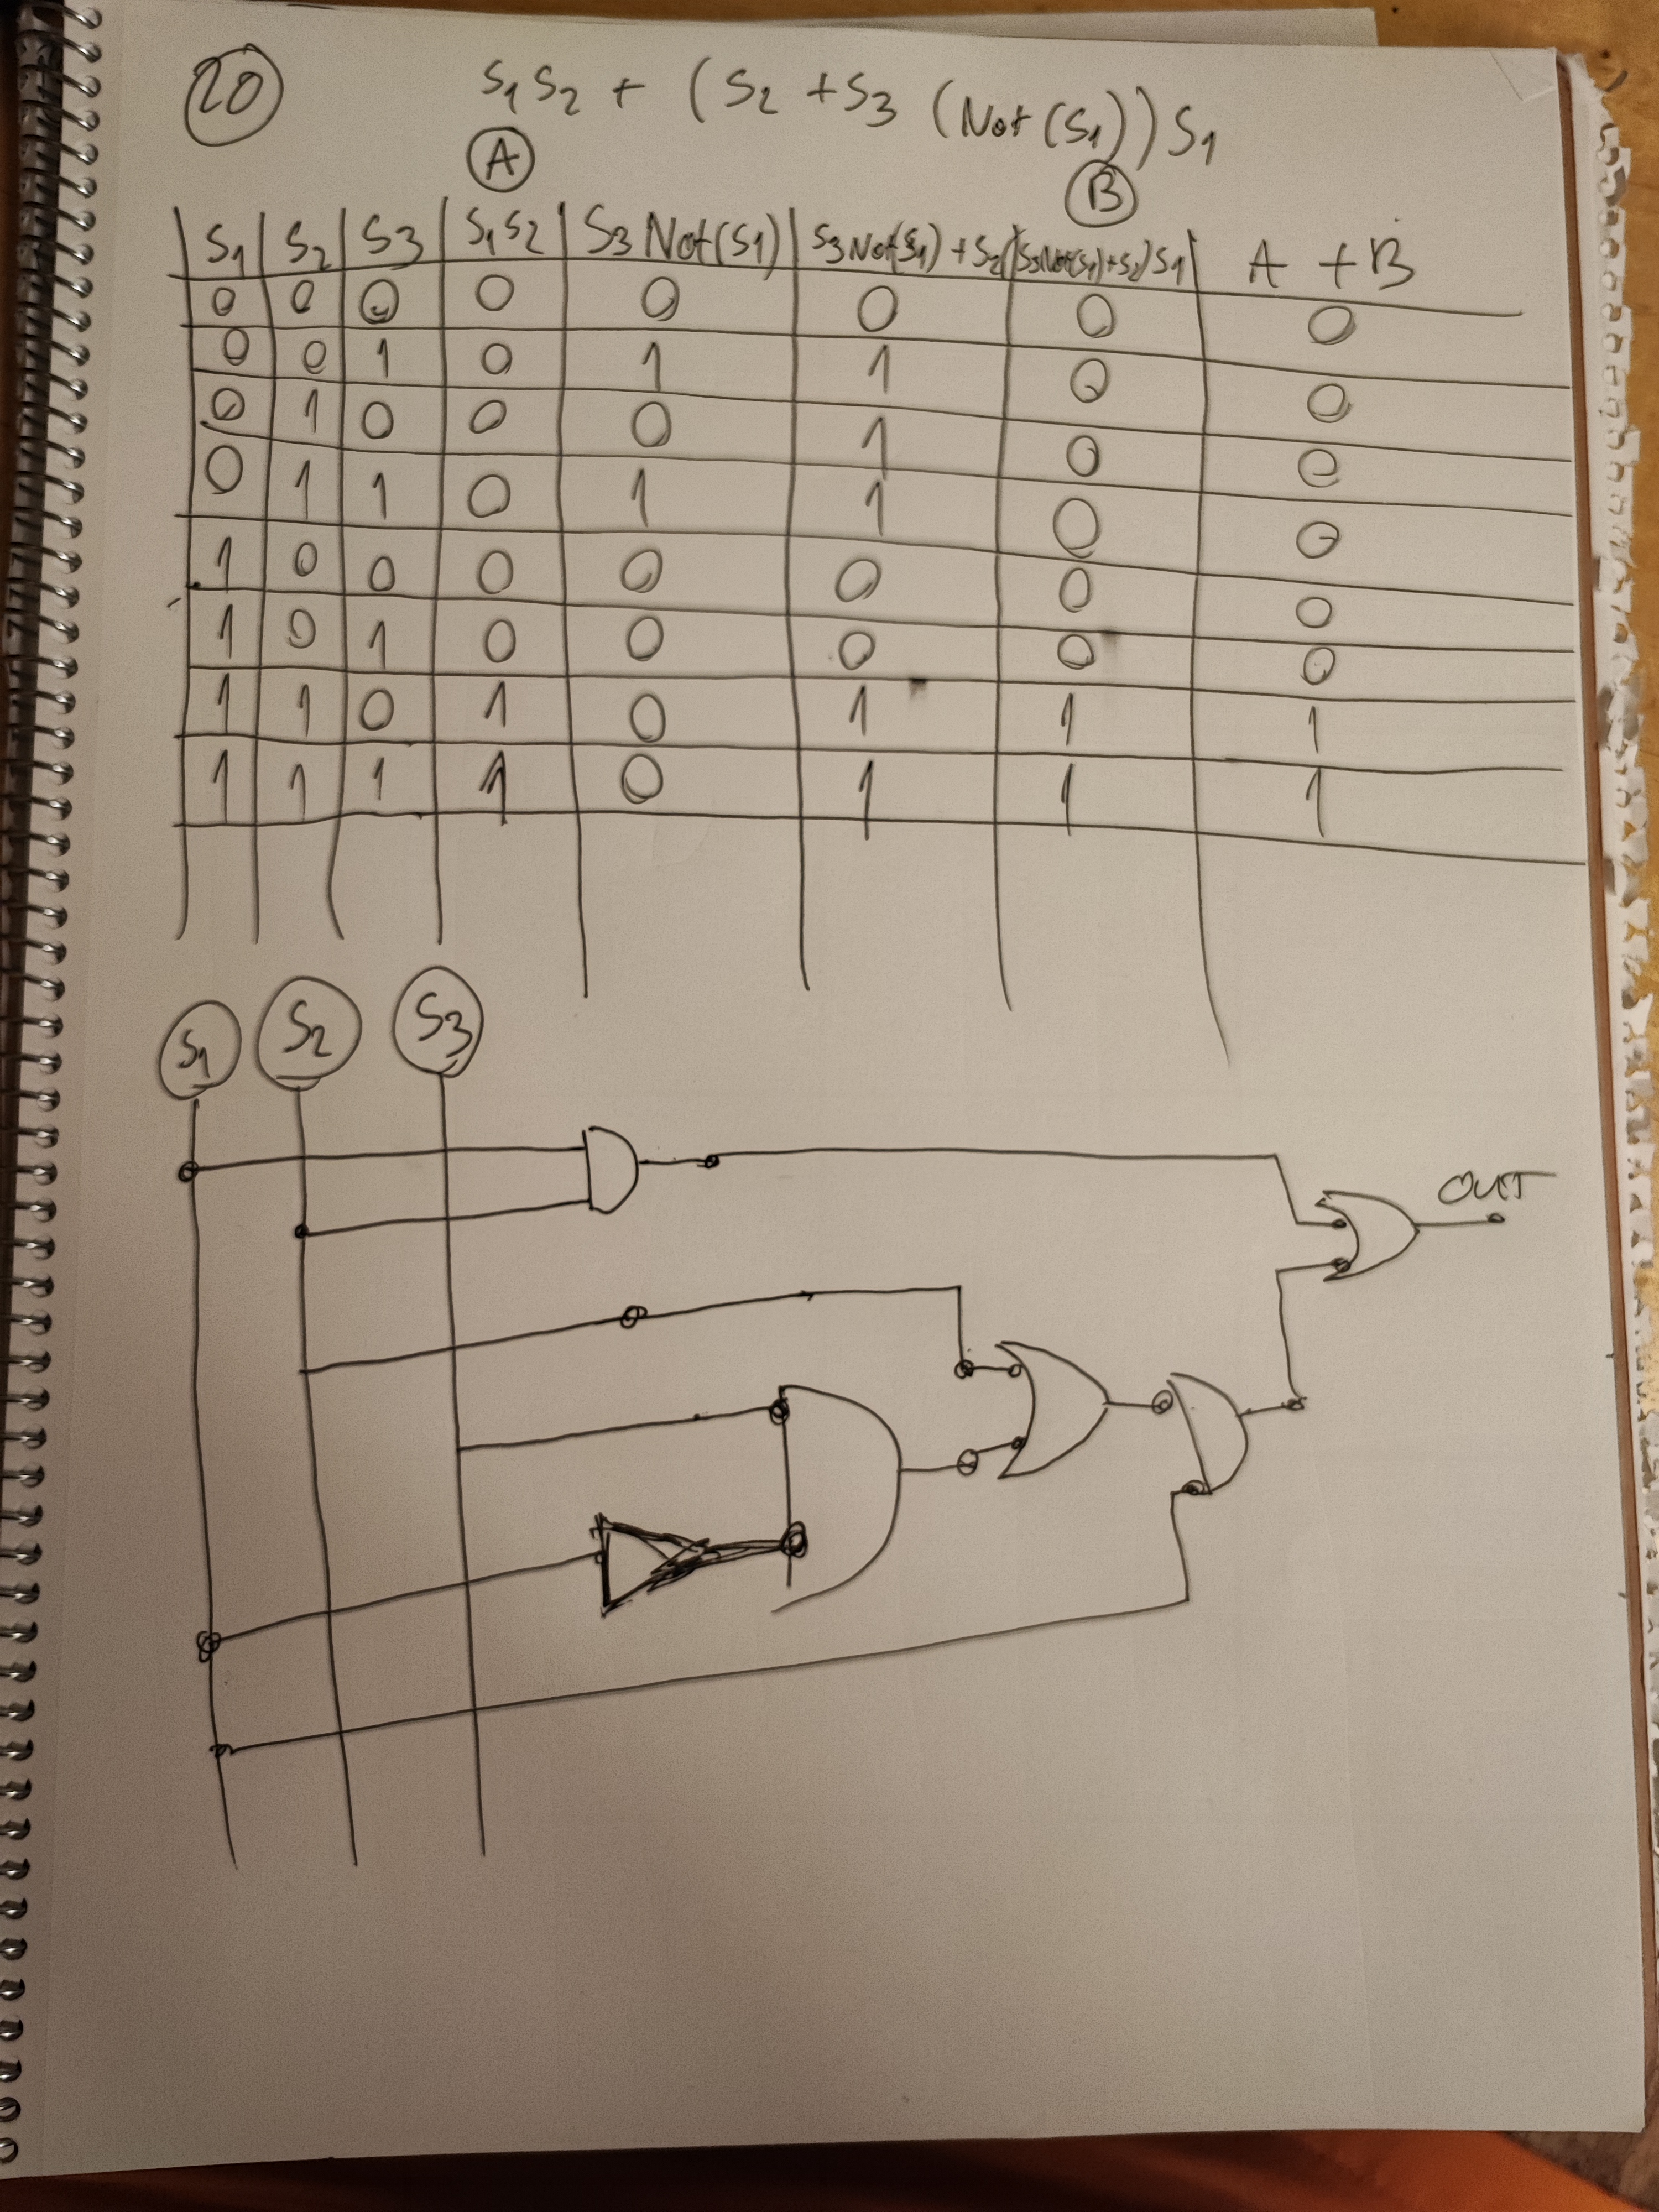 20 S1 S2 + (S2 + S3 (Not(S1)) S1
A B
S1 S2 S3 S1 S2 S3 Not(S1) S3 Not(S1) + S2 (S3 Not(S1)+S2) S1 A + B
0 0 0 0 0 0 0 0
0 0 1 0 1 1 0 0
0 1 0 0 0 1 0 0
0 1 1 0 1 1 0 0
1 0 0 0 0 0 0 0
1 0 1 0 0 0 0 0
1 1 0 1 0 1 1 1
1 1 1 1 0 1 1 1
S1 S2 S3
OUT